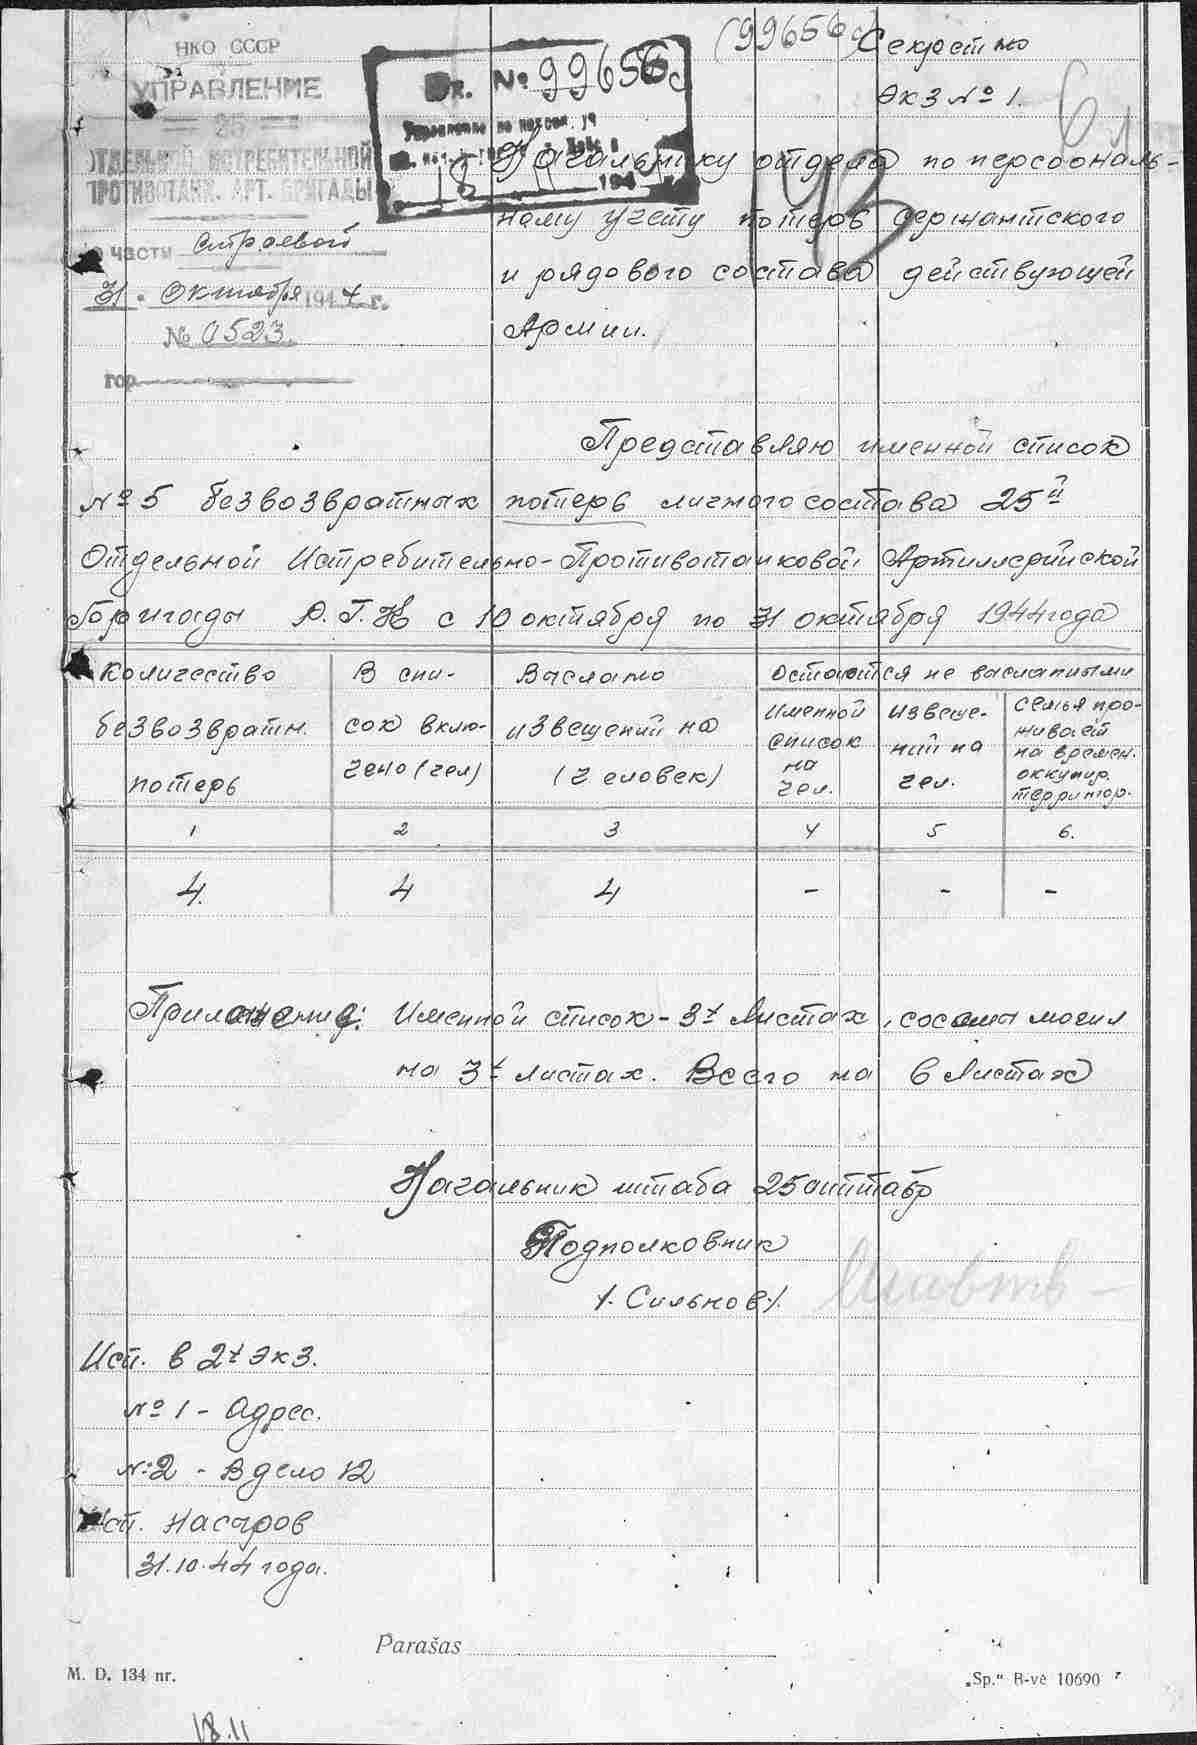 НКО СССР
УПРАВЛЕНИЕ
25
ОТДЕЛЬНОЙ ИСТРЕБИТЕЛЬНОЙ
ПРОТИВОТАНК. АРТ. БРИГАДЫ
По части Строевой
31 " Октября 1944 г.
№ 0523.
гор.
Вх. № 99656с
194
(99656с)
Секретно
Экз № 1.
6 л
Начальнику отдела по персональ-
ному учету потерь сержантского
и рядового состава действующей
Армии.
Представляю именной список
№ 5 безвозвратных потерь личного состава 25й
Отдельной Истребительно-Противотанковой Артиллерийской
Бригады Р.Г.К с 10 октября по 31 октября 1944 года
Количество безвозвратн. потерь
В спи- сок вклю- чено (чел)
Выслано извещений на (человек)
Остаются не высланными
Именной список на чел.
Извеще- ний на чел.
Семья про- живает на времен. оккупир. территор.
1 2 3 4 5 6.
4. 4 4 - - -
Приложение: Именной список - 3х листах, схемы могил
на 3х листах. Всего на 6 листах
Начальник штаба 25 оиптабр
Подполковник
/. Сильнов /.
Исп. в 2х экз.
№ 1 - Адрес.
№ 2 - В дело 12
Исп. Насыров
31.10.44 года.
Parašas
M. D. 134 nr.
„Sp.“ B-vė 10690
18.11